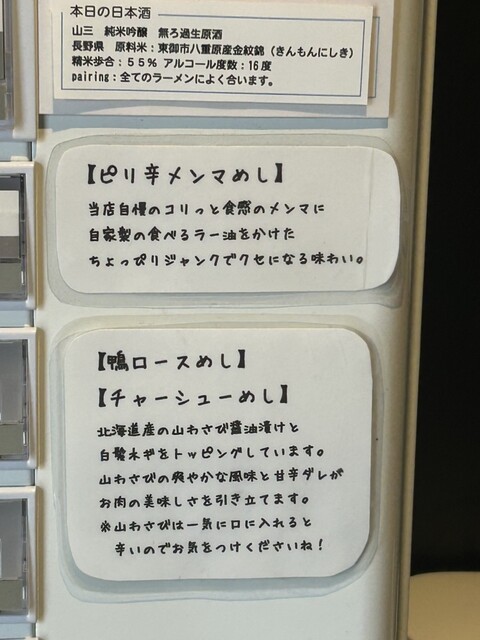 本日の日本酒
山三 純米吟醸 無ろ過生原酒
長野県 原料米：東御市八重原産金紋錦（きんもんにしき）
精米歩合：５５％ アルコール度数：16度
pairing：全てのラーメンによく合います。
【ピリ辛メンマめし】
当店自慢のコリっと食感のメンマに
自家製の食べるラー油をかけた
ちょっぴりジャンクでクセになる味わい。
【鴨ロースめし】
【チャーシューめし】
北海道産の山わさび醤油漬けと
白髪ネギをトッピングしています。
山わさびの爽やかな風味と甘辛ダレが
お肉の美味しさを引き立てます。
※山わさびは一気に口に入れると
辛いのでお気をつけくださいね！